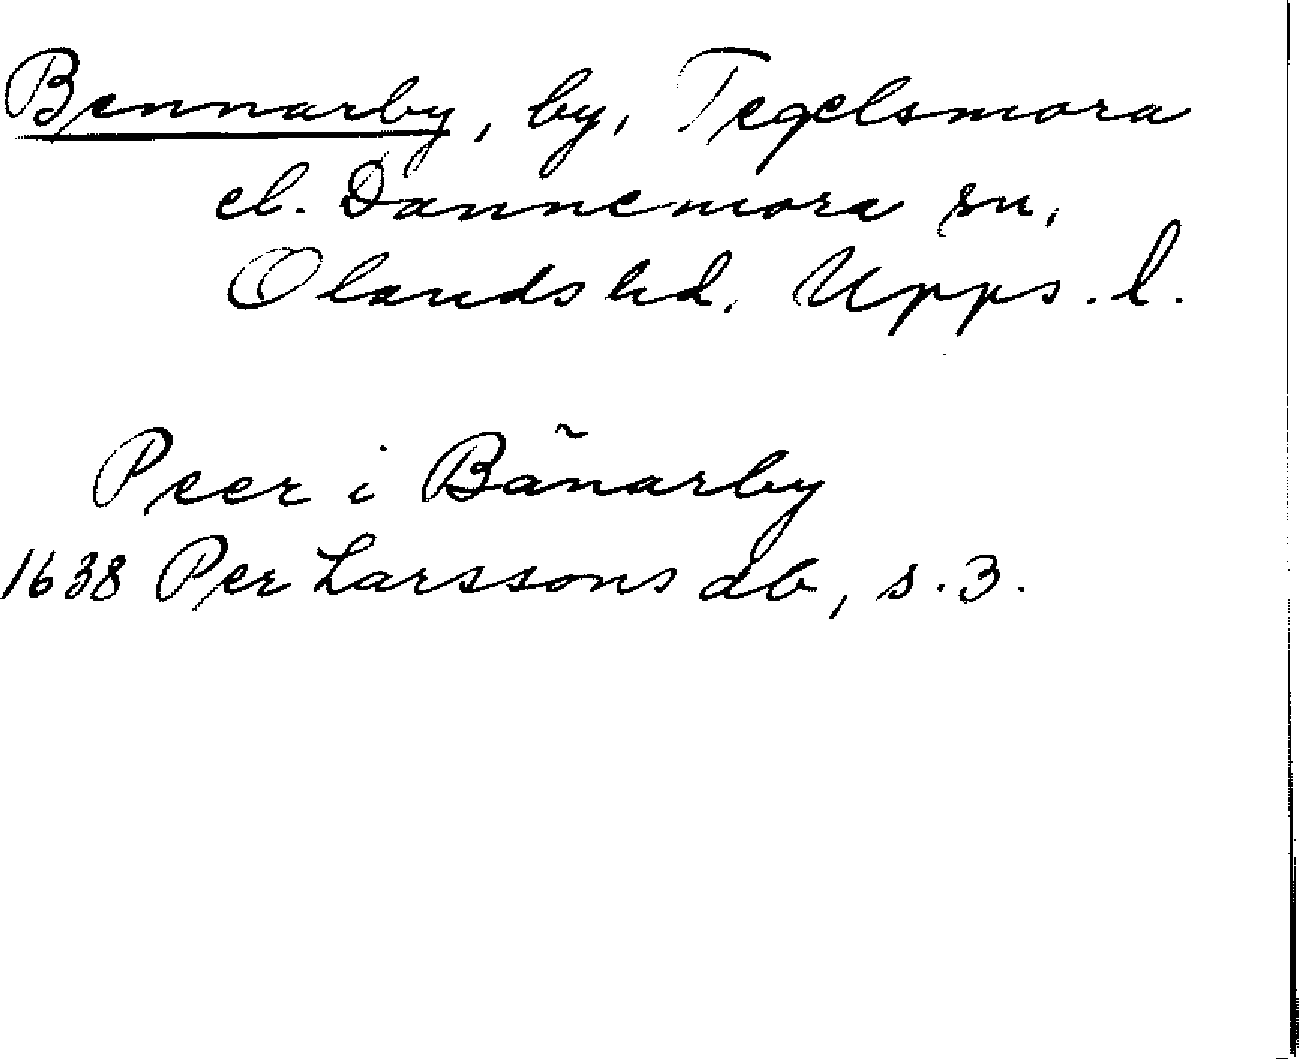 Bennarby, by, Tegelsmora
el. Dannemora sn,
Olands hd. Upps. l.
Peer i Bän̄arby
1638 Per Larssons db, s. 3.